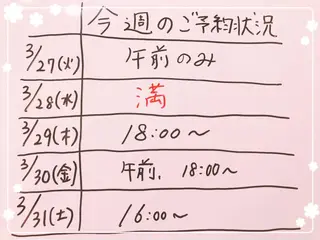 今週のご予約状況
3/27(火) 午前のみ
3/28(水) 満
3/29(木) 18:00〜
3/30(金) 午前、18:00〜
3/31(土) 16:00〜